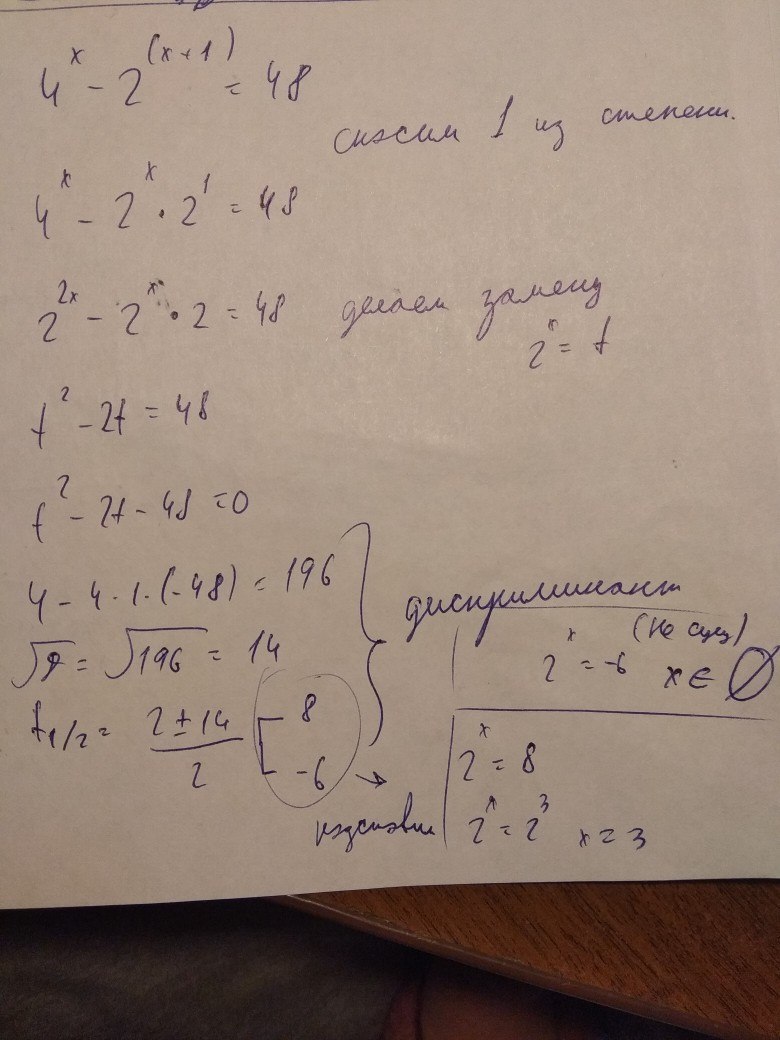 4^x - 2^(x+1) = 48
сносим 1 из степени.
4^x - 2^x · 2^1 = 48
2^2x - 2^x · 2 = 48 делаем замену
2^x = t
t^2 - 2t = 48
t^2 - 2t - 48 = 0
4 - 4 · 1 · (-48) = 196
√D = √196 = 14
t1/2 = (2 ± 14)/2 [ 8 -6
дискриминант
(не сущ)
2^x = -6 x ∈ ∅
2^x = 8
2^x = 2^3 x = 3